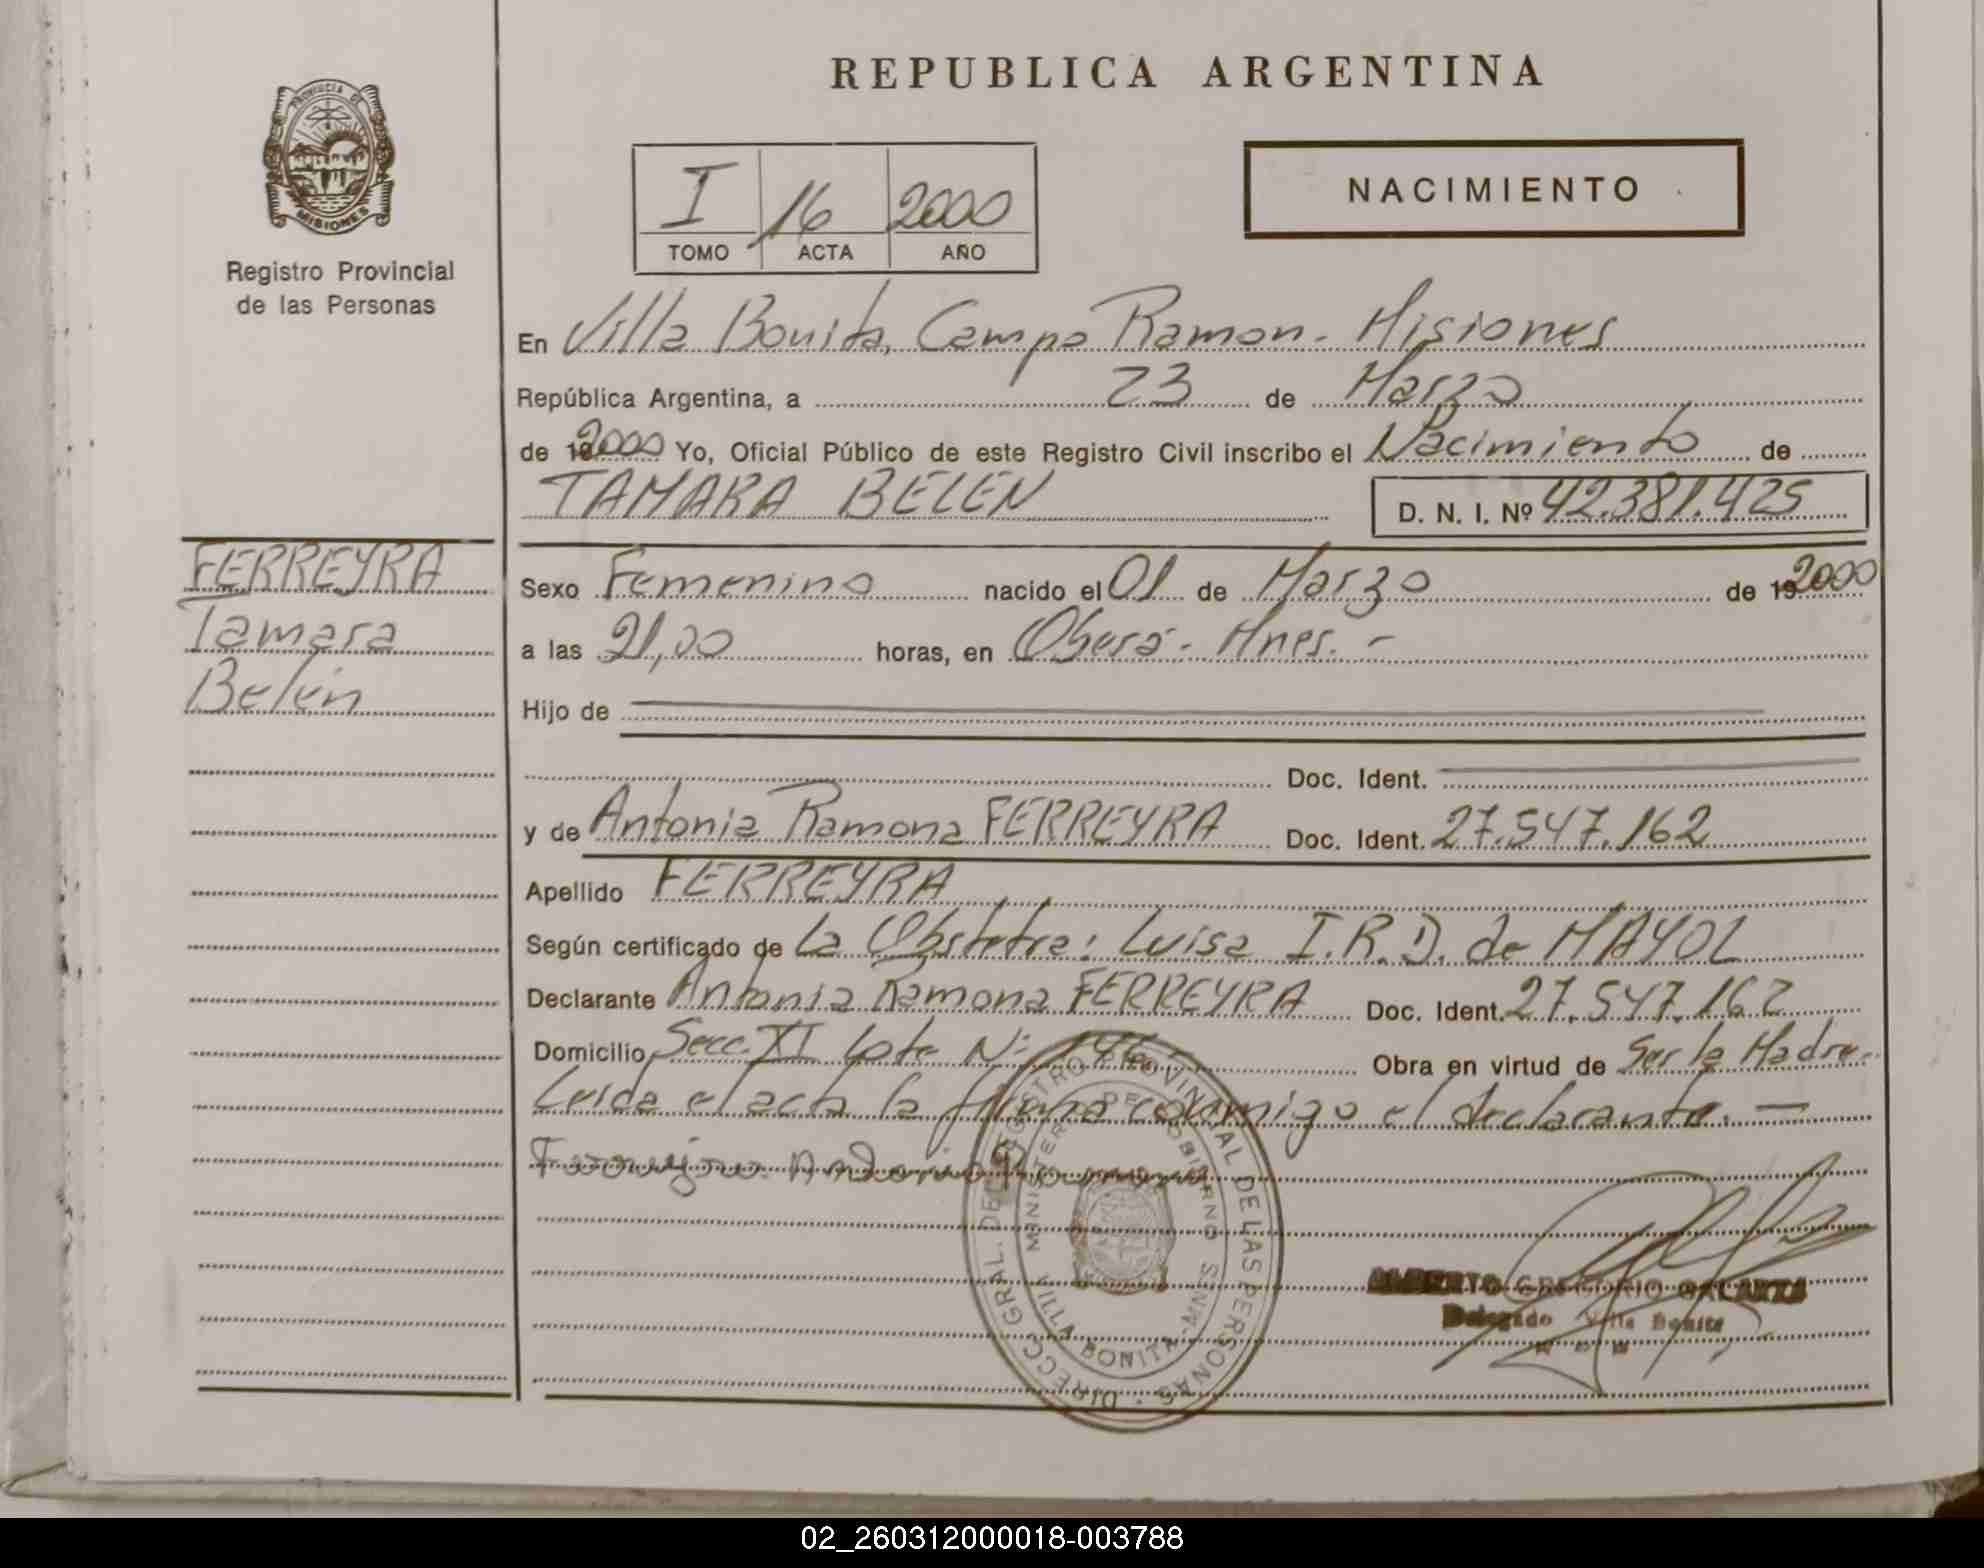 REPUBLICA ARGENTINA
PROVINCIA DE
MISIONES
Registro Provincial
de las Personas
I 16 2000
TOMO ACTA AÑO
NACIMIENTO
En Villa Bonita, Campo Ramon - Misiones
República Argentina, a 23 de Marzo
de 2000 Yo, Oficial Público de este Registro Civil inscribo el Nacimiento de
TAMARA BELEN
D. N. I. Nº 42.381.425
FERREYRA
Tamara
Belén
Sexo Femenino nacido el 01 de Marzo de 2000
a las 21,00 horas, en Oberá - Mnes. -
Hijo de
Doc. Ident.
y de Antonia Ramona FERREYRA Doc. Ident. 27.547.162
Apellido FERREYRA
Según certificado de La Obstetra: Luisa I.R.D. de MAYOL
Declarante Antonia Ramona FERREYRA Doc. Ident. 27.547.162
Domicilio Secc. XI Lote Nº Obra en virtud de Ser la Madre.-
Leída el acta la firma conmigo el declarante. —
Antonia Ramona
DIRECC. GRAL. DEL REGISTRO PROVINCIAL DE LAS PERSONAS
MINISTERIO DE GOBIERNO
VILLA BONITA - MNES
ALBERTO GREGORIO GALARZA
Delegado Villa Bonita
02_260312000018-003788